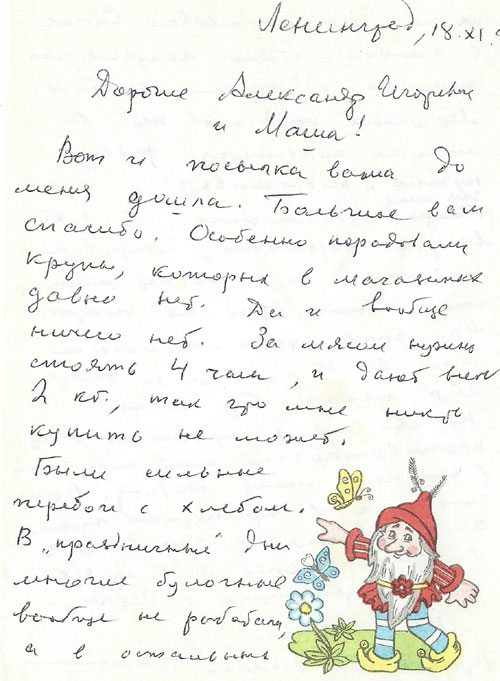 Ленинград, 18.XI.
Дорогие Александр Игоревич
и Маша!
Вот и посылка ваша до
меня дошла. Большое вам
спасибо. Особенно порадовали
крупы, которых в магазинах
давно нет. Да и вообще
ничего нет. За мясом нужно
стоять 4 часа, и дают всего
2 кг., так что мне никто
купить не может.
Были сильные
перебои с хлебом.
В „праздничные" дни
многие булочные
вообще не работали,
а в остальных